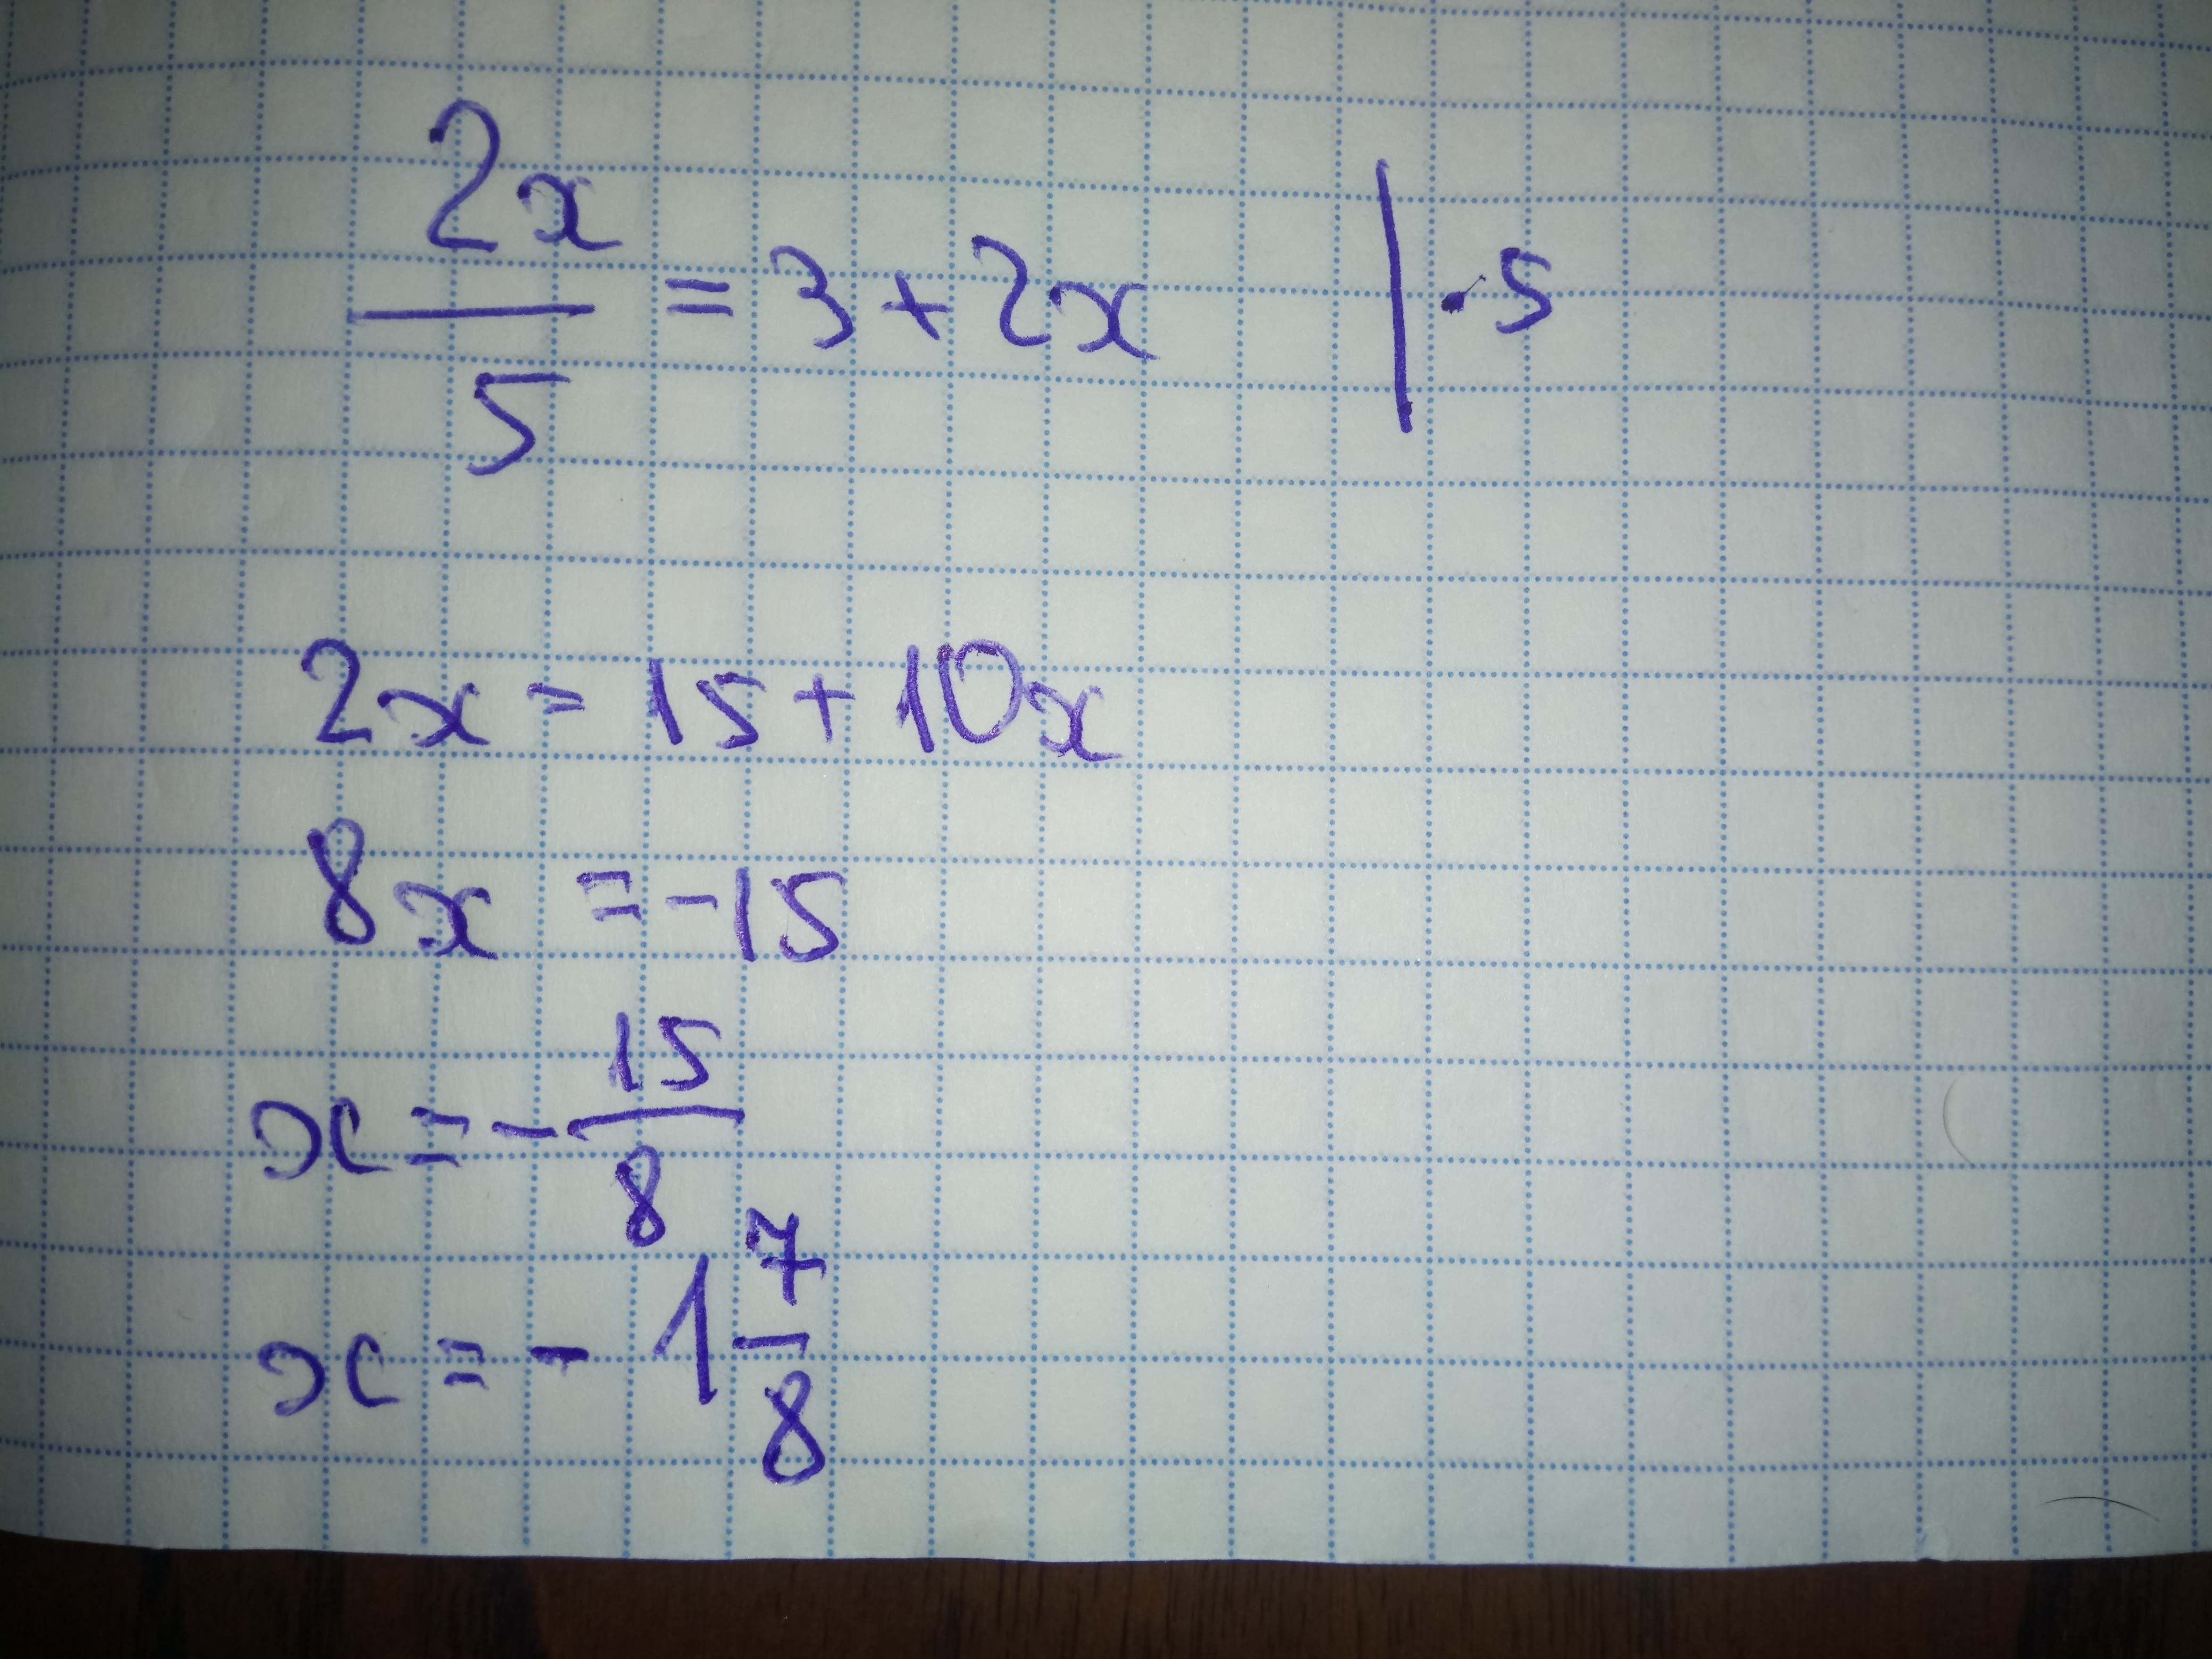 2x/5 = 3 + 2x | · 5
2x = 15 + 10x
8x = -15
x = - 15/8
x = - 1 7/8